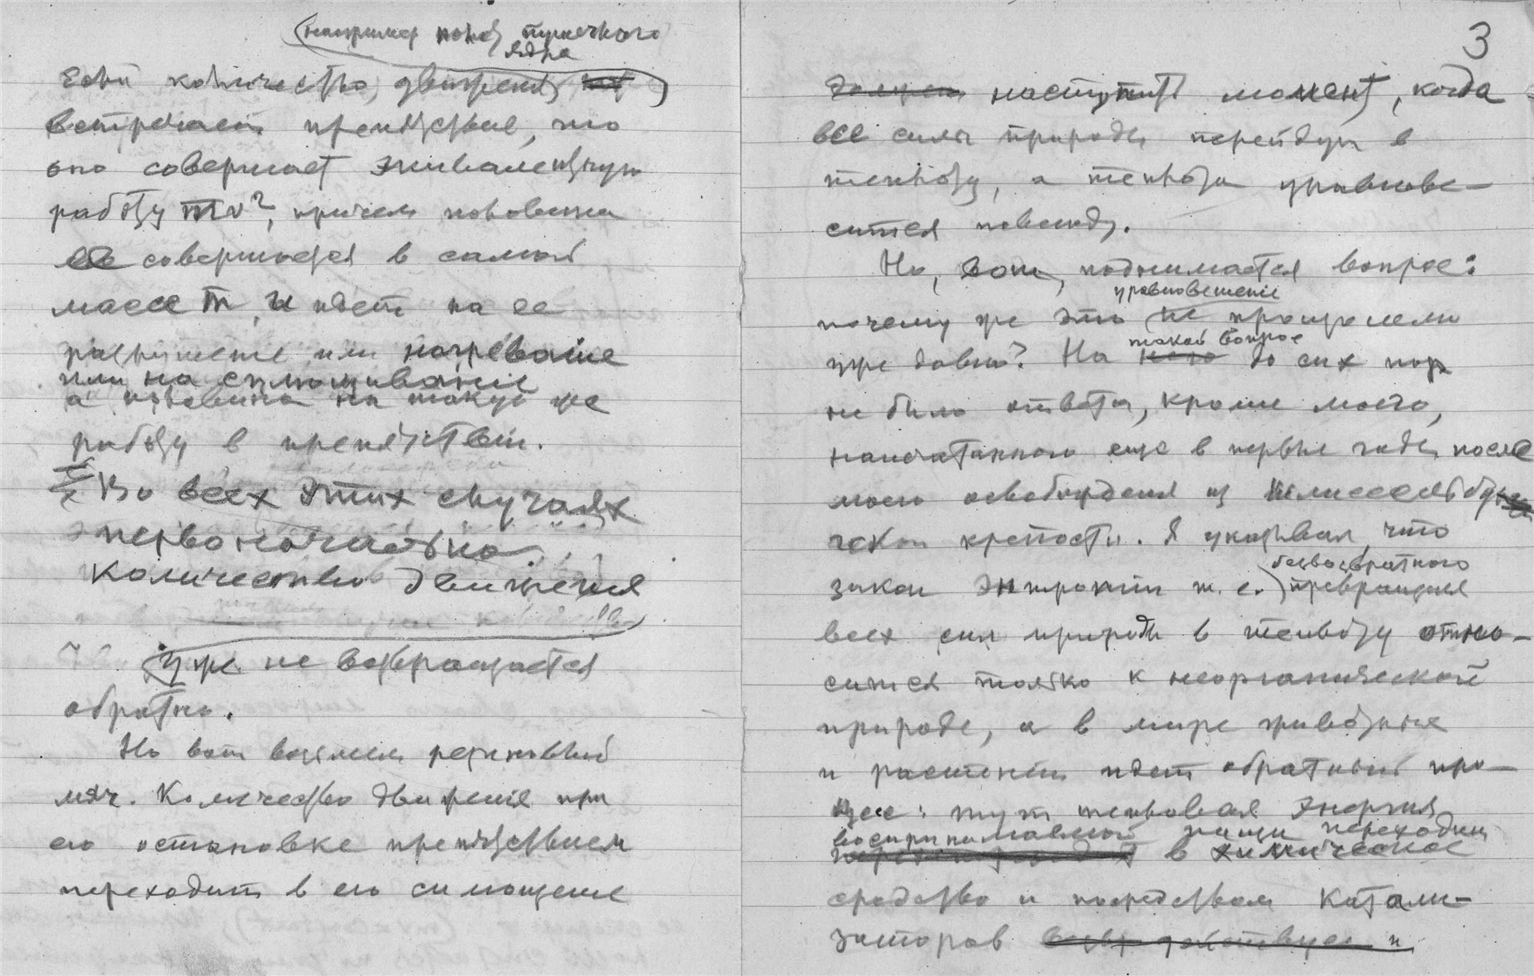 (например полет пушечного
ядра
Если количество движения
встречает препятствие, то
оно совершает эквивалентную
работу mv², причем половина
ее совершается в самой
массе m, и идет на ее
разрушение или нагревание
или на сплющивание
а половина на такую же
работу в препятствии.
Во всех этих случаях
первоначально
количество движения
Уже не возвращается
обратно.
Но вот возьмем резиновый
мяч. Количество движения при
его остановке препятствием
переходит в его сплющение
3
наступит момент, когда
все силы природы перейдут в
теплоту, а теплота уравнове-
сится повсюду.
Но, вот, поднимается вопрос:
уравновешение
почему же это не произошло
такой вопрос
уже давно? На до сих пор
не было ответа, кроме моего,
напечатанного еще в первые годы после
моего освобождения из Шлиссельбург
ской крепости. Я указывал, что
безвозвратного
закон энтропии т. е. превращения
всех сил природы в теплоту отно-
сится только к неорганической
природе, а в мире животных
и растений идет обратный про-
цесс: тут тепловая энергия
воспринимаемой пищи переходит
в химическое
сродство и посредством катали-
заторов